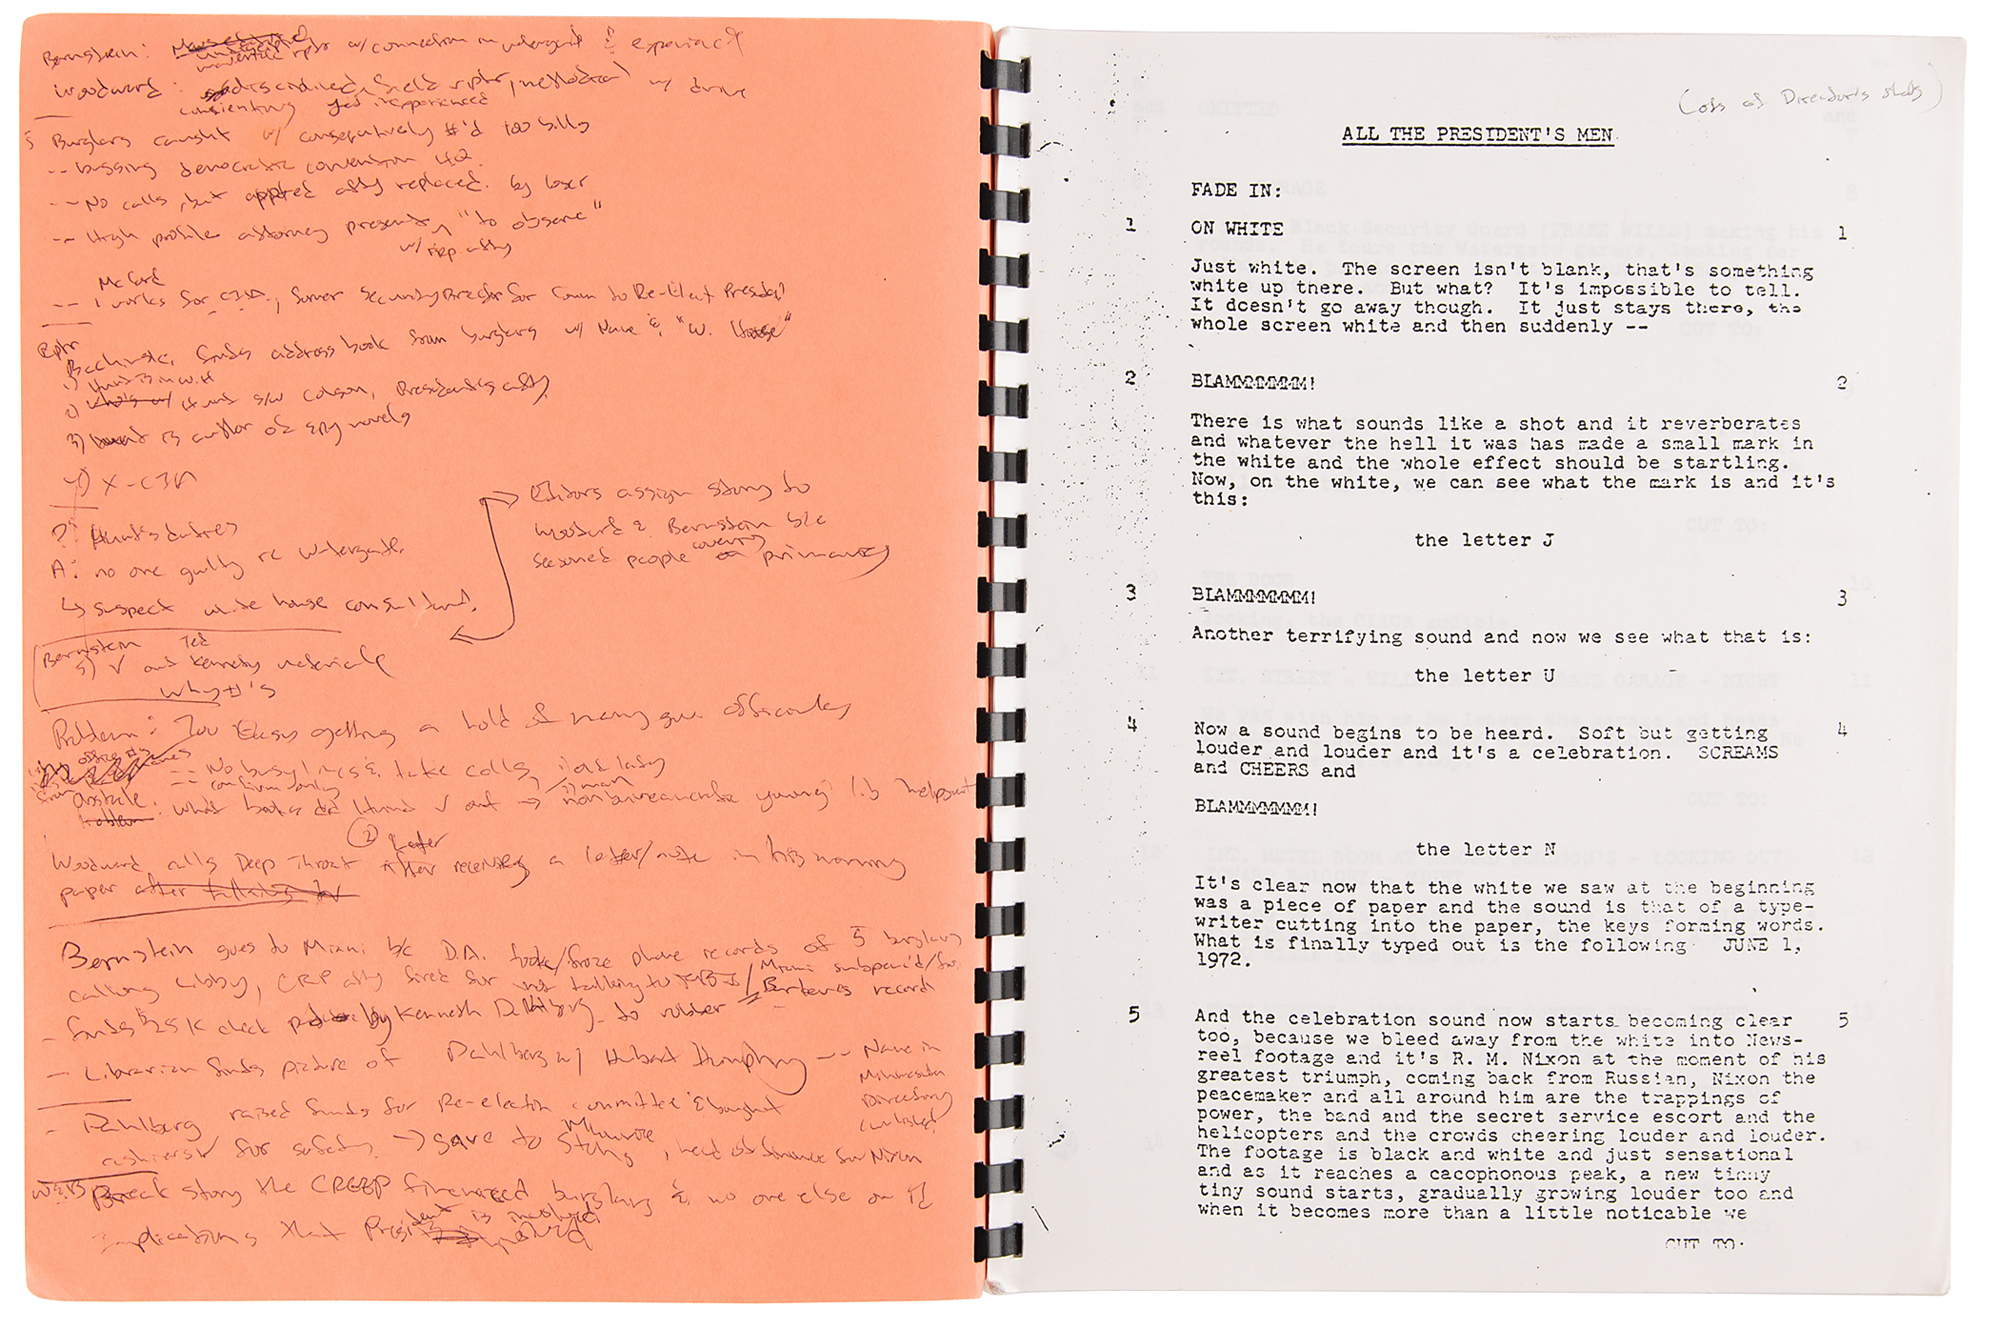 Bernstein: rptr w/ connection in watergate & experience
Woodward: disciplined field rptr, methodical w/ drive
yet inexperienced
5 Burglars caught w/ consequatively #'d 100 bills
-- bugging democratic convention HQ.
-- No calls, but atty replaced. by
-- High profile attorney present, "to observe"
w/ rep atty
McCord
-- 1 works for CIA, former Security Director for Comm to Re-Elect President
Rptr
Bachinski, finds address book from burglars w/ Name & "W. House"
1) Hunt is in W.H
2) Hunt Colson, President's atty
3) is author of spy novels
4) X-CIA
?: Hunt's duties
A: no one guilty re watergate.
↳ suspect white house consultant.
Editors assign story to
Woodward & Bernstein b/c
seasoned people covering primary
Bernstein Ted
5) √ out Kennedy materials
Why
Problem: Too Easy getting a hold of many gov officials
-- No busy lines & take calls, lady
confirm only
Obstacle: what books did Hunt √ out → young lib helps out
② Later
Woodward calls Deep Throat After receiving a letter/note in his morning
paper after talking to
Bernstein goes to Miami b/c D.A. took/froze phone records of 5 burglars
calling Libby, CRP atty fired for not talking to Miami subpena'd
record
- finds $25K check by Kenneth Dahlberg to robber
- Librarian finds picture of Dahlberg w/ Hubert Humphrey -- Name in
Minnesota
Directory
- Dahlberg raised funds for Re-election committee & bought
cashiers √ for safety → gave to Stans, head of finance for Nixon
W & B Break story the CREEP financed burglary & no one else on it
Implications that President is involved
(Lots of Director's shots)
ALL THE PRESIDENT'S MEN
FADE IN:
1 ON WHITE 1
Just white. The screen isn't blank, that's something
white up there. But what? It's impossible to tell.
It doesn't go away though. It just stays there, the
whole screen white and then suddenly --
2 BLAMMMMMMM! 2
There is what sounds like a shot and it reverberates
and whatever the hell it was has made a small mark in
the white and the whole effect should be startling.
Now, on the white, we can see what the mark is and it's
this:
the letter J
3 BLAMMMMMMM! 3
Another terrifying sound and now we see what that is:
the letter U
4 Now a sound begins to be heard. Soft but getting 4
louder and louder and it's a celebration. SCREAMS
and CHEERS and
BLAMMMMMMM!
the letter N
It's clear now that the white we saw at the beginning
was a piece of paper and the sound is that of a type-
writer cutting into the paper, the keys forming words.
What is finally typed out is the following JUNE 1,
1972.
5 And the celebration sound now starts becoming clear 5
too, because we bleed away from the white into News-
reel footage and it's R. M. Nixon at the moment of his
greatest triumph, coming back from Russian, Nixon the
peacemaker and all around him are the trappings of
power, the band and the secret service escort and the
helicopters and the crowds cheering louder and louder.
The footage is black and white and just sensational
and as it reaches a cacophonous peak, a new tinny
tiny sound starts, gradually growing louder too and
when it becomes more than a little noticable we
CUT TO: